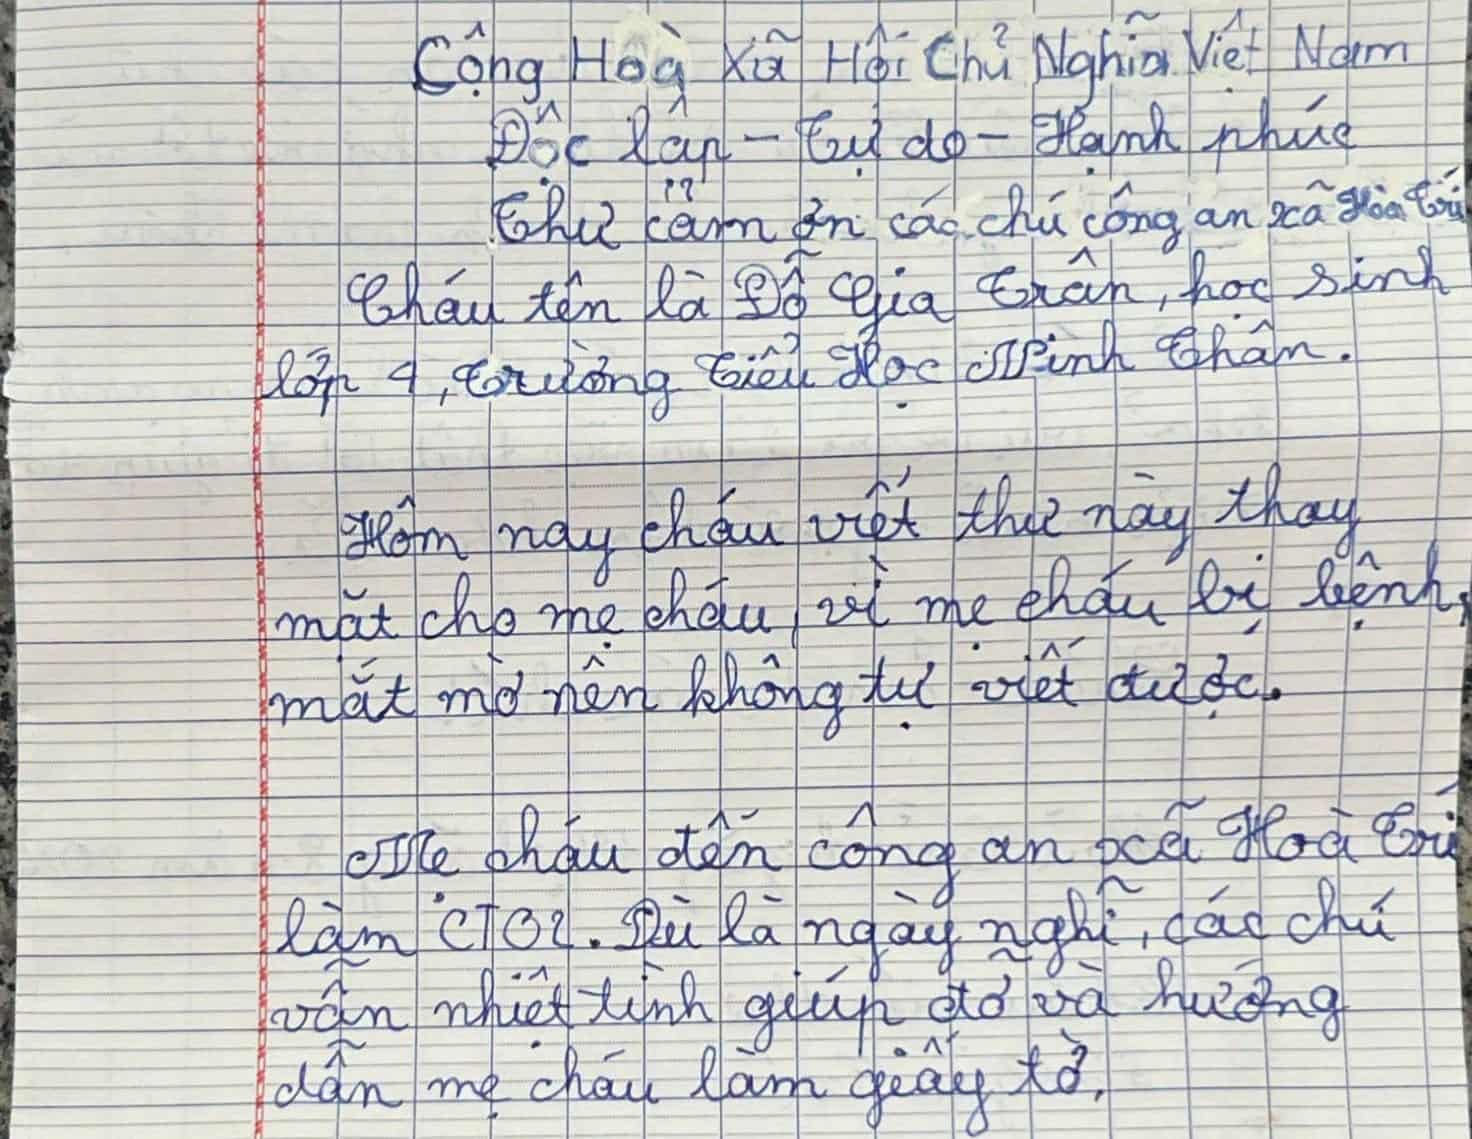 Cộng Hoà Xã Hội Chủ Nghĩa Việt Nam
Độc lập - Tự do - Hạnh phúc
Thư cảm ơn các chú công an xã Hòa Trí
Cháu tên là Đỗ Gia Trân, học sinh
lớp 4, trường Tiểu Học Ninh Thân.
Hôm nay cháu viết thư này thay
mặt cho mẹ cháu, vì mẹ cháu bị bệnh,
mắt mờ nên không tự viết được.
Mẹ cháu đến công an xã Hoà Trí
làm CT02. Dù là ngày nghỉ, các chú
vẫn nhiệt tình giúp đỡ và hướng
dẫn mẹ cháu làm giấy tờ.